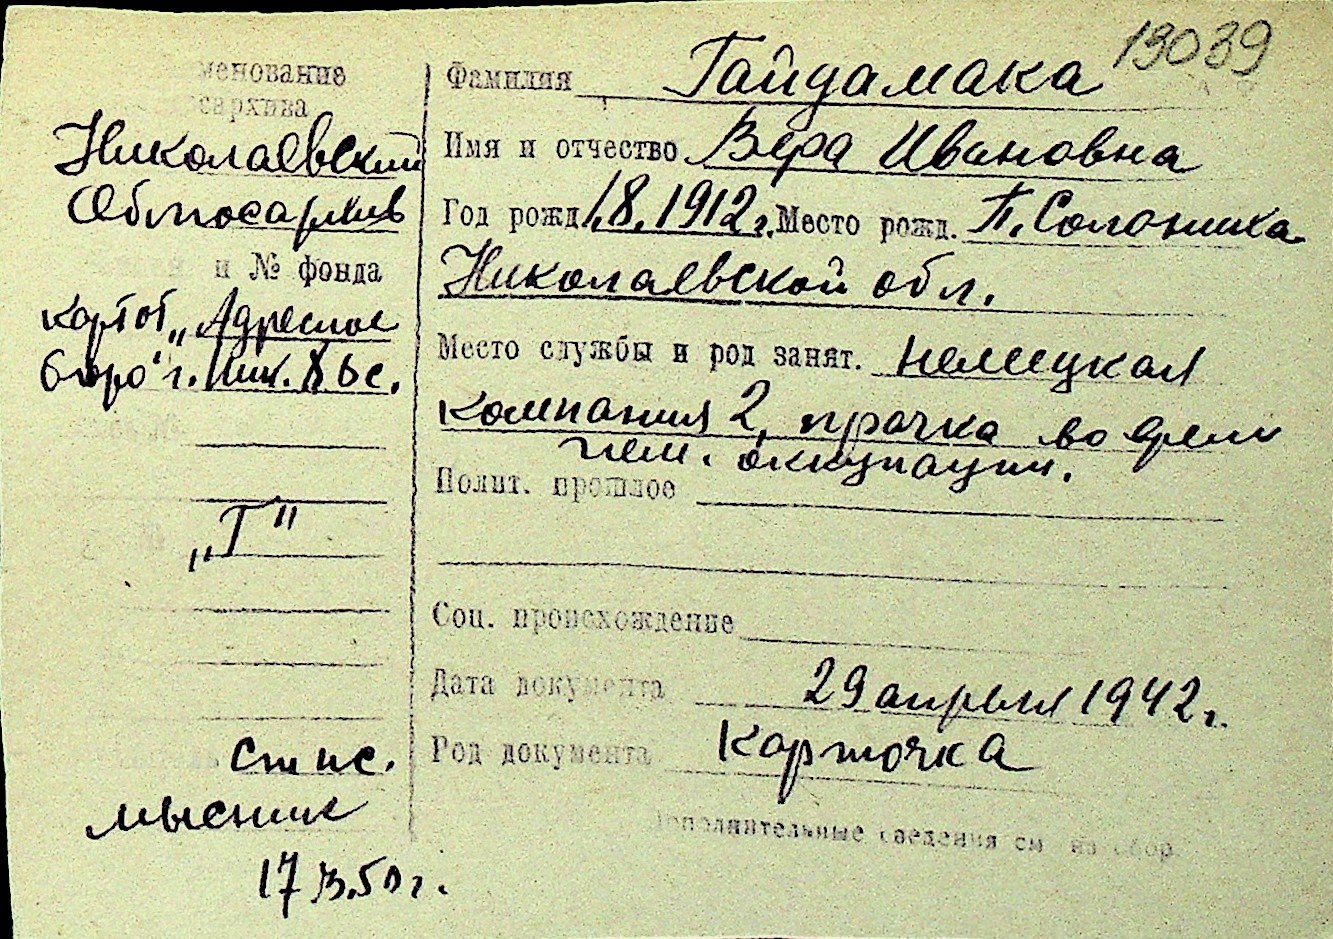 19039
менование
сархива
Николаевский
Облгосархив
и № фонда
картот. „Адресное
бюро" г. Ник.
„Г"
ст. ис.
17 50 г.
Фамилия Гайдамака
Имя и отчество Вера Ивановна
Год рожд. 1.8.1912 г. Место рожд. п. Солониха
Николаевской обл.
Место службы и род занят. немецкая
компания 2, прачка во время
нем. оккупации.
Полит. прошлое
Соц. происхождение
Дата документа 29 апреля 1942 г.
Род документа Карточка
Дополнительные сведения см на обор.